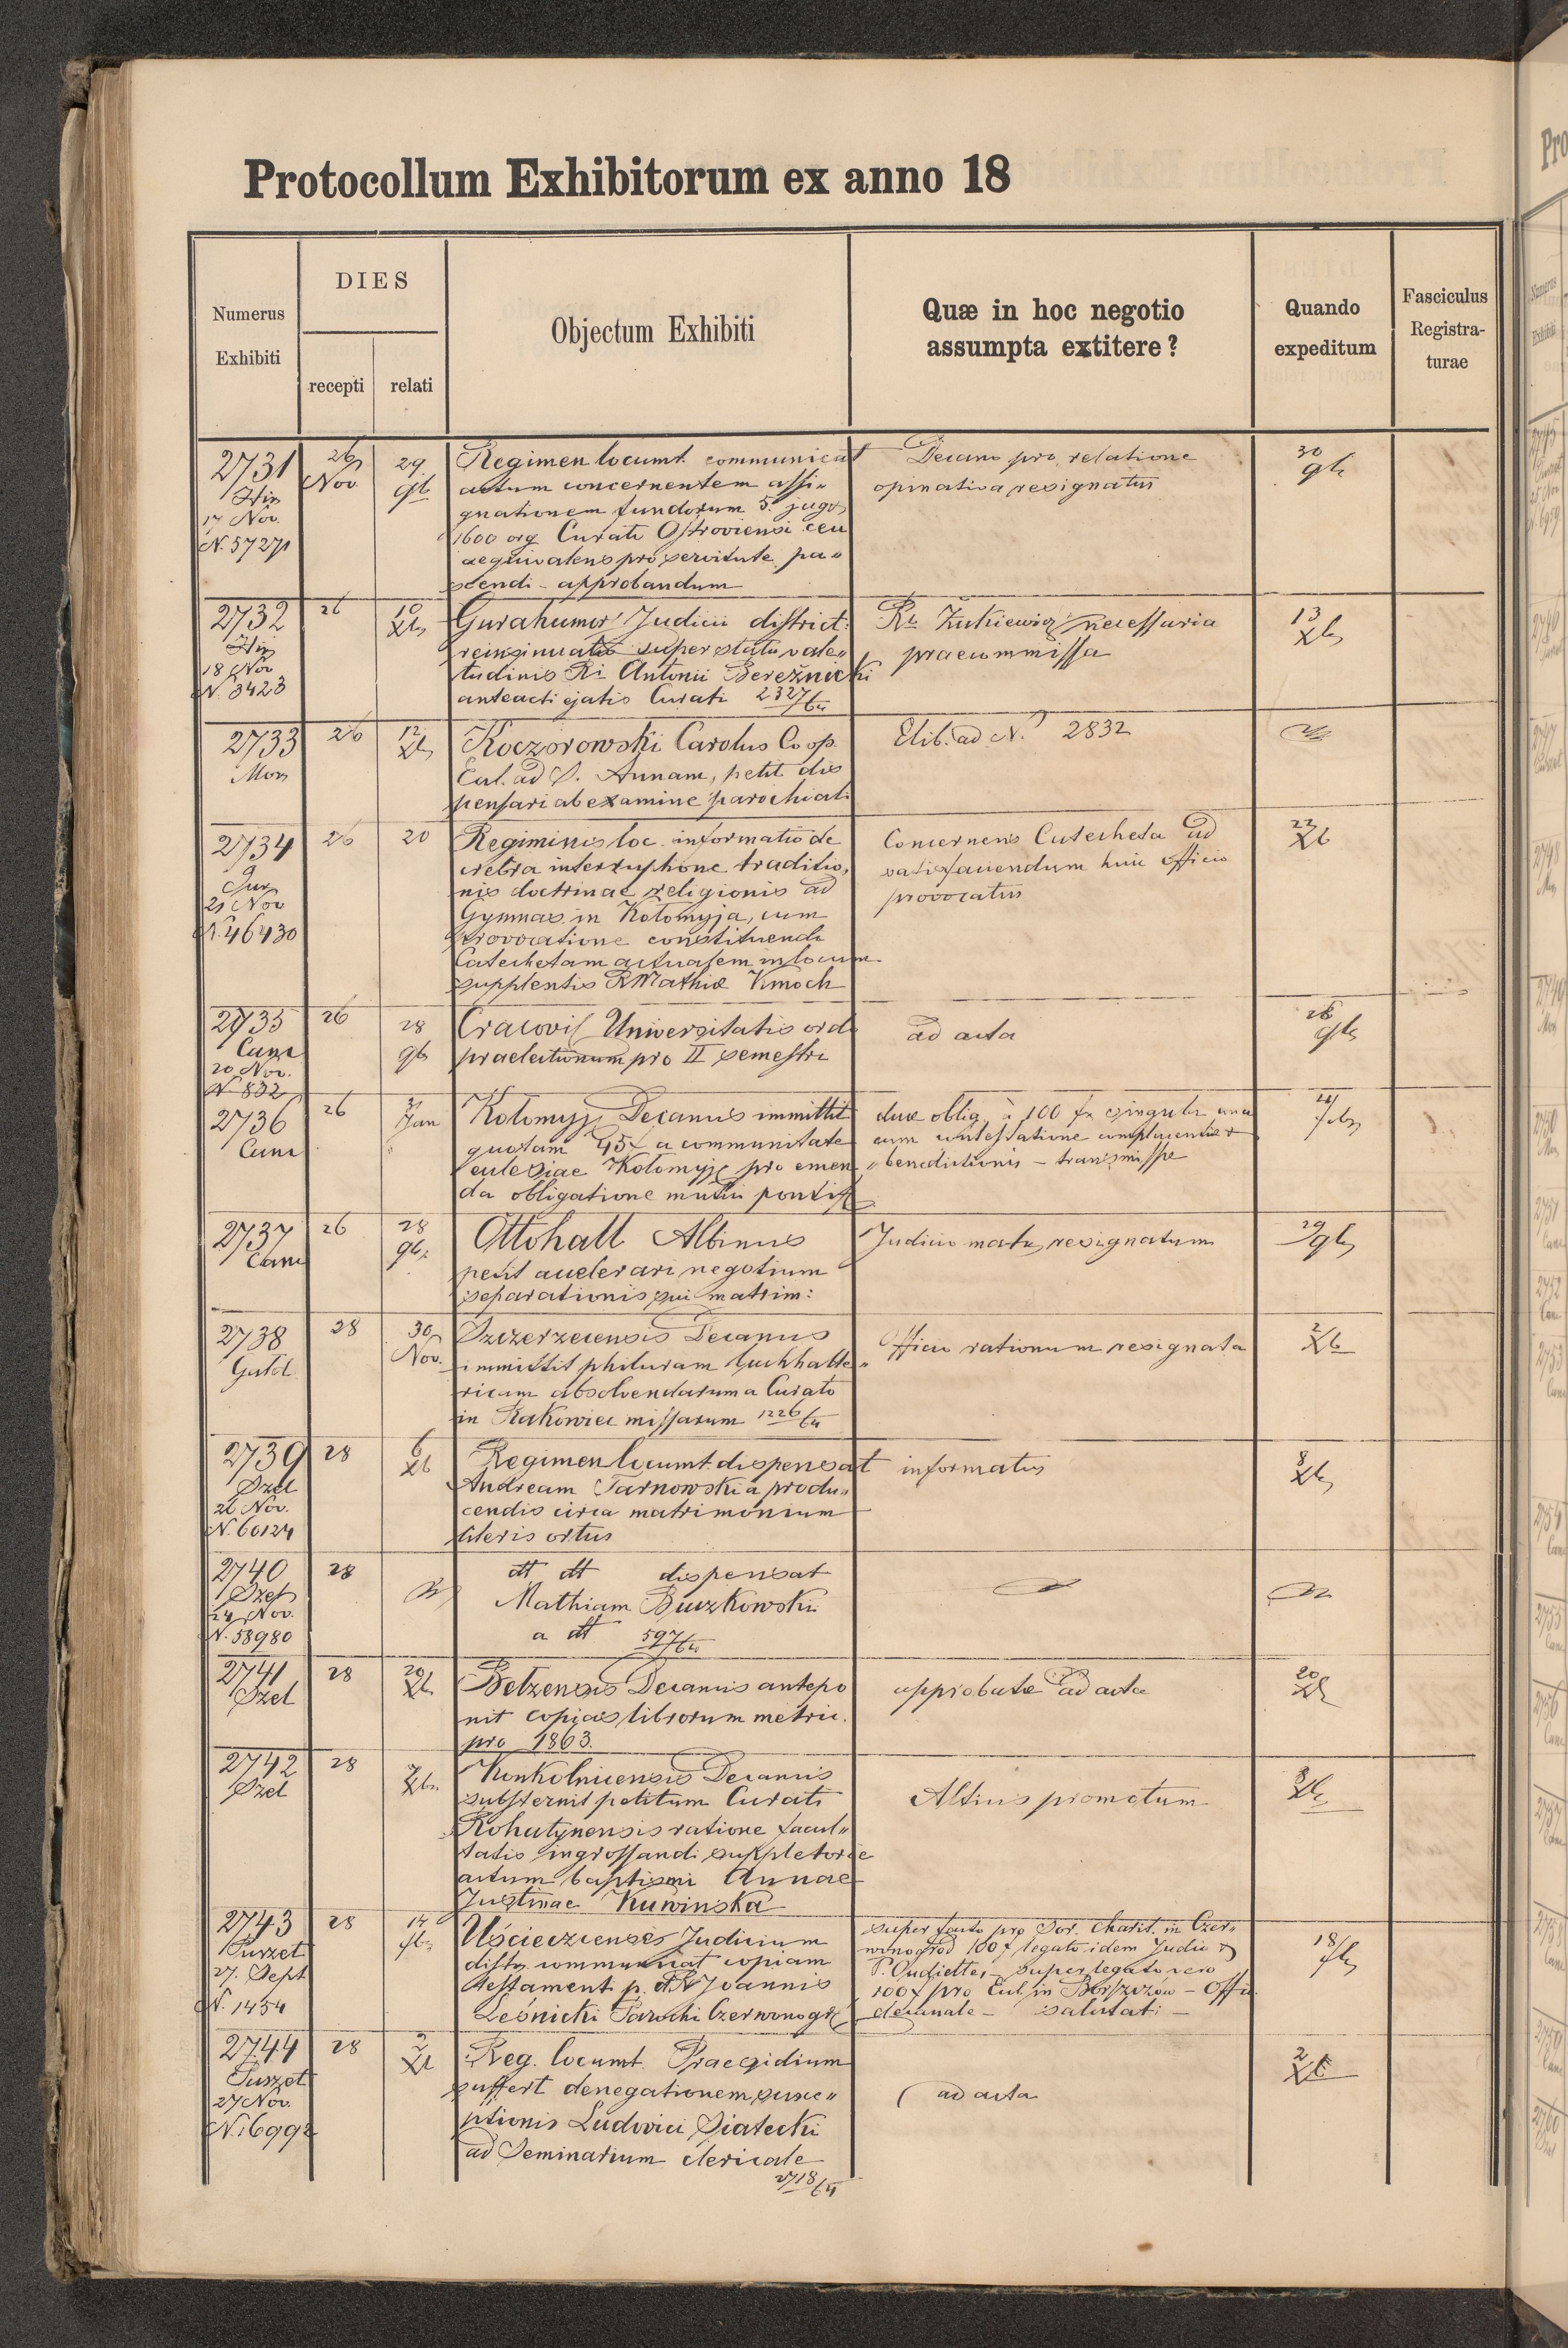 Protocollum Exhibitorum ex anno 18
Numerus Exhibiti
DIES
recepti
relati
Objectum Exhibiti
Quæ in hoc negotio
assumpta extitere?
Quando
expeditum
Fasciculus
Registra-
turae
2731
17 Nov.
N. 57271
26 Nov
29 9b
Regimen locumt. communicat
actum concernentem assi„
gnationem fundorum 5. jug.
1600 org Curato Ostroviensi ceu
aequivalens pro servitute pa„
scendi - approbandum
Decano pro relatione
opinativa resignatus
30
2732
18 Nov
N. 3423
26
10 Xb
Gurahumor Judicii district:
reinsinuatio super statu vale„
tudinis Ri Antonii Berežnicki
anteacti ejatis Curati 2327/64
Rr. Żukiewicz necessaria
praecommissa
13 Xb
2733
Mon
26
12 Xb
Koczorowski Carolus Coop.
Eccl. ad S. Annam, petit dis
pensari ab examine parochiali
Elib. ad N. 2832
2734
Jur
21 Nov
N. 46430
26
20
Regiminis loc. informatio de
crebra interruptione traditio„
nis doctrinae religionis ad
Gymnas. in Kołomyja, cum
provocatione constituendi
Catechetam actualem in locum
supplentis R Mathiæ Kmoch
Concernens Catecheta ad
satisfaciendum huic officio
provocatus
22 Xb
2735
Came
20 Nov.
N. 832
26
28 9b
Cracovi Universitatis ord
praelectionum pro II semestri
ad acta
28
2736
Came
26
31 Jan
Kołomyj Decanus immittit
quotam 45 f a communitate
ecclesiae Kołomyj pro emen
da obligatione mutui pontif
duæ oblig. à 100 fr singula una
cum contestatione complacentiæ &
benedictionis - transmissæ
2737
Came
26
28 9b
Ottohall Albinus
petit accelerari negotium
separationis sui matrim:
Judicio matr. resignatum
29 9b
2738
28
30 Nov.
Szczerzecensis Decanus
immittit philuram buchhalte„
ricam absolvendarum a Curato
in Rakowiec missarum 1226/64
Officio rationum resignata
2 Xb
2739
Szel
26 Nov.
N. 60124
28
6 Xb
Regimen locumt. dispensat
Andream Tarnowski a produ„
cendis circa matrimonium
literis ortus
informatus
8 Xb
2740
Szel
24 Nov.
N. 58980
28
dtt dtt dispensat
Mathiam Buczkowski
a dtt 597/64
2741
Szel
28
20 Xb
Belzensis Decanus antepo
nit copias librorum metric.
pro 1863.
approbatæ ad acta
20 Xb
2742
Szel
28
7 Xb
Konkolnicensis Decanus
substernit petitum Curati
Rohatynensis ratione facul„
tatis ingrossandi suppletorie
actum baptismi Annae
Justinae Kuwinska
Altius promotum
8 Xb
2743
27. Sept
N. 1454
28
14
Uścieczcenses Judicium
distr. communicat copiam
testament. p. d. R Joannis
Leśnicki Parochi Czerwonogr
super facto pro Sor. Charit. in Czer„
wonogrod 100 f legato idem Judic &
P. Oudiette, - super legato vero
100 f pro Eccl. in Borszczów - Offic.
decanale - salutati -
18
2744
27 Nov.
N. 16992
28
2 Xb
Reg. locumt. Praesidium
suffert denegationem susce„
ptionis Ludovici Siatecki
ad Seminarium clericale
2718/64
ad acta
2 Xb